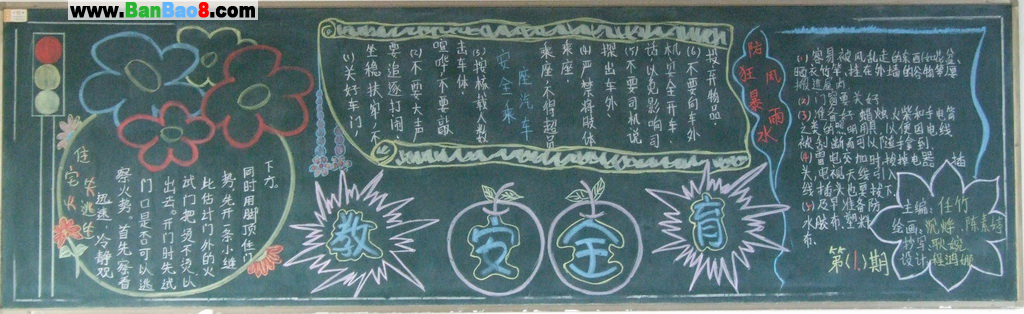 www.BanBao8.com
住宅火
失逃生
迅速、冷静观
察火势。首先察看
门口是否可以逃
出去。开门时先试
试门把烫不烫以
比估计门外的火
势,先开一条小缝
同时用脚顶住门
下方。
安全乘
座汽车
(1)关好车门,
坐稳扶牢,不
要追逐打闹。
(2)不要大声
喧哗,不要敲
击车体。
(3)按核载人数
乘座不得超员
乘座。
(4)严禁将肢体
探出车外。
(5)不要司机说
话,以免影响司
机安全开车。
(6)不要向车外
投弃物品。
教安全育
防风雨水
狂暴
(1)容易被风乱走的东西如花盆、
晒衣竹竿,挂在外墙的谷物等厚
搬进屋内。
(2)门窗要关好
(3)准备好蜡烛、火柴和手电筒
之类的照明用具,以便因电线
被刮断有可以随手拿到。
(4)雷电交加时,拔掉电器插
头,电视天线引入
线插头也要拔下。
(5)及早准备防
水胶布、塑料
布。
第(1.)期
主编:任竹
绘画:
抄写:
设计: